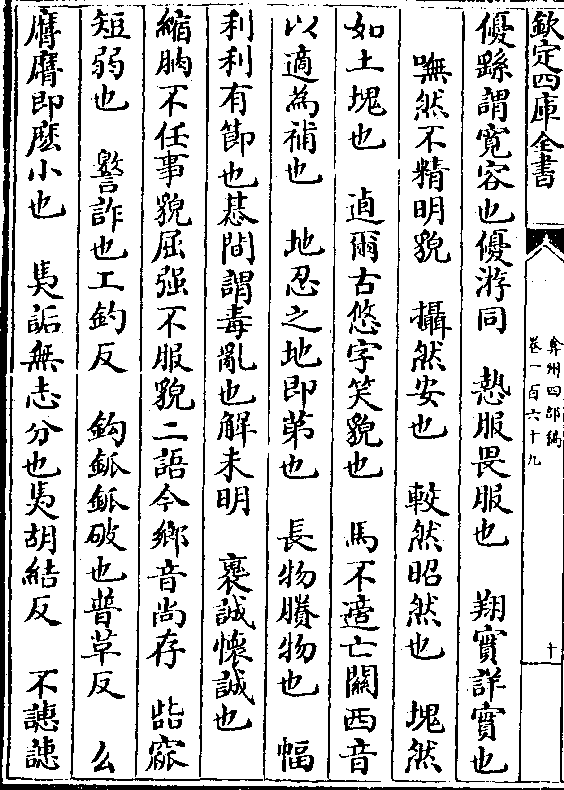 欽定四庫全書
弇州四部稿
卷一百六十九
十
優繇謂寛容也優游同　慹服畏服也　翔實詳實也
嘸然不精明貌　攝然安也　較然昭然也　塊然
如土塊也　逌爾古悠字笑貌也　馬不適亡關西音
以適為補也　地忍之地即第也　長物賸物也　幅
利利有節也惎間謂毒亂也解未明　褱誠懷誠也
縮朒不任事貌屈强不服貌二語今鄉音尚存　呰窳
短弱也　謷詐也工釣反　鈎鈲鈲破也普草反　么
麿麿即麽小也　奊詬無志分也奊胡結反　不譓譓